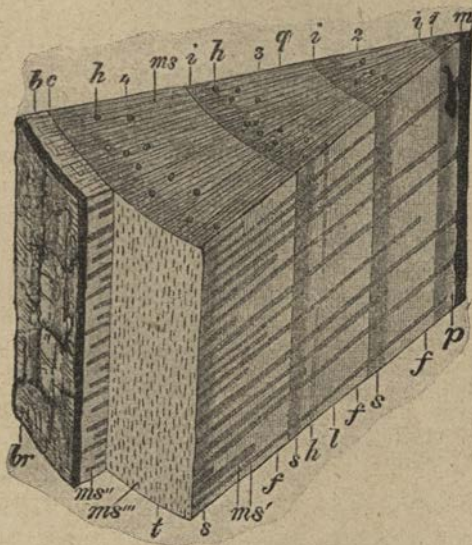 b c h 4 ms i h 3 q i 2 i 1 m
p
f
s
f
l
h
s
f
ms'
s
t
ms'''
ms''
br